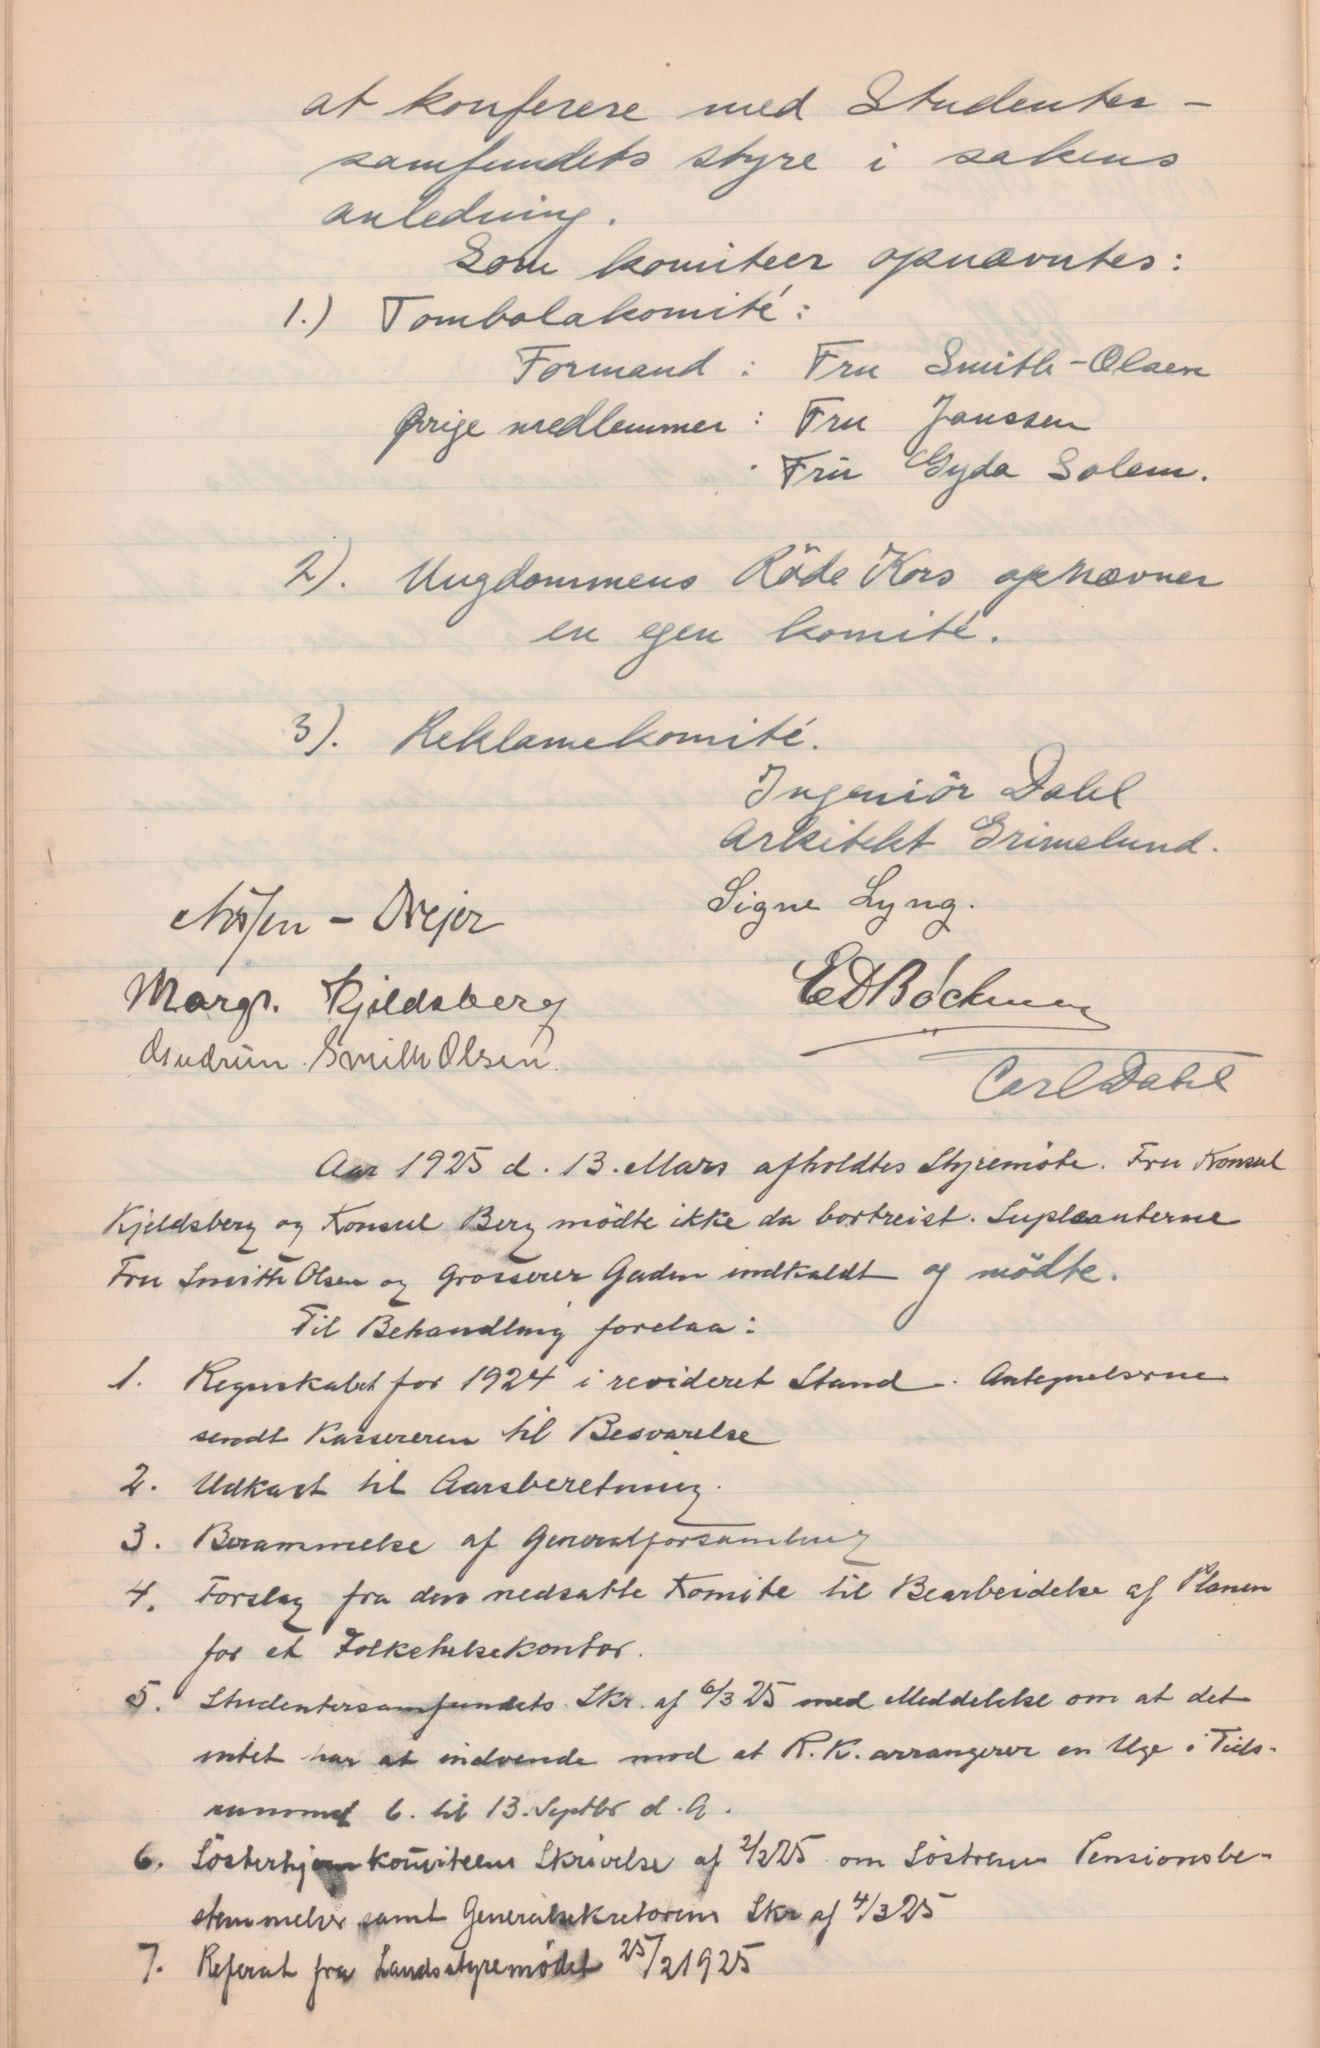 at konferere med Studenter-
samfundets styre i sakens
anledning.
Som komiteer opnævntes:
1.) Tombolakomité:
Formand : Fru Smith-Olsen
Øvrige medlemmer : Fru Janssen
Fru Gyda Solem.
2). Ungdommens Röde Kors opnævner
en egen komité.
3). Reklamekomité.
Ingeniör Dahl
Arkitekt Grimelund.
Signe Lyng.
Drejer
Margr. Kjeldsberg
EDBöckman
Gudrun Smith Olsen.
Carl Dahl
Aar 1925 d. 13. Mars afholdtes Styremöte. Fru Konsul
Kjeldsberg og Konsul Berg mödte ikke da bortreist. Supleanterne
Fru Smith Olsen og Grosserer Gaden indkaldt og mödte.
Til Behandling forelaa:
1. Regnskabet for 1924 i revideret Stand. Antegnelserne
sendt Kassereren til Besvarelse
2. Udkast til Aarsberetning.
3. Berammelse af Generalforsamling
4. Forslag fra den nedsatte Komite til Bearbeidelse af Planen
for et Folkehelsekontor.
5. Studentersamfundets Skr. af 6/3 25 med Meddelelse om at det
intet har at indvende mod at R.K. arrangerer en Uge i Tids-
rummet 6. til 13. Septbr d.A.
6. Lösterhjemkomiteens Skrivelse af 2/2 25 om Söstrenes Pensionsbe-
stemmelser samt Generalsekretærens Skr af 4/3 25
7. Referat fra Landsstyremödet 25/2 1925